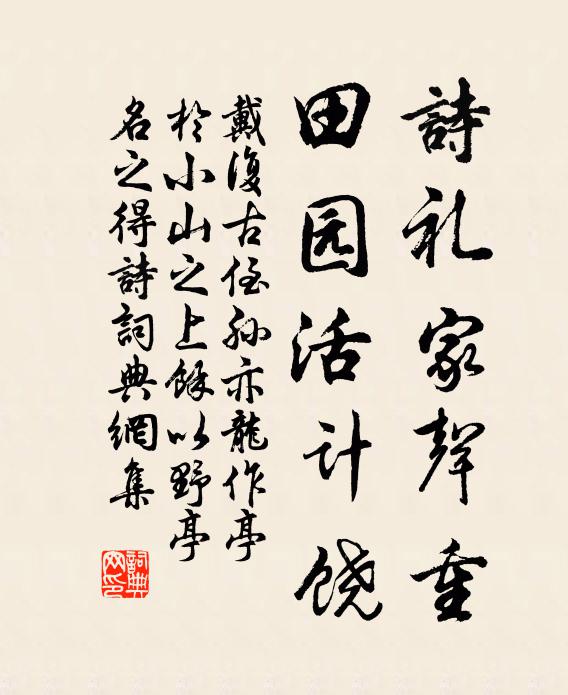 詩礼家聲重
田园活计饶
戴復古侄孙亦龍作亭
於小山之上餘以野亭
名之得詩詞典網集
詞典網印